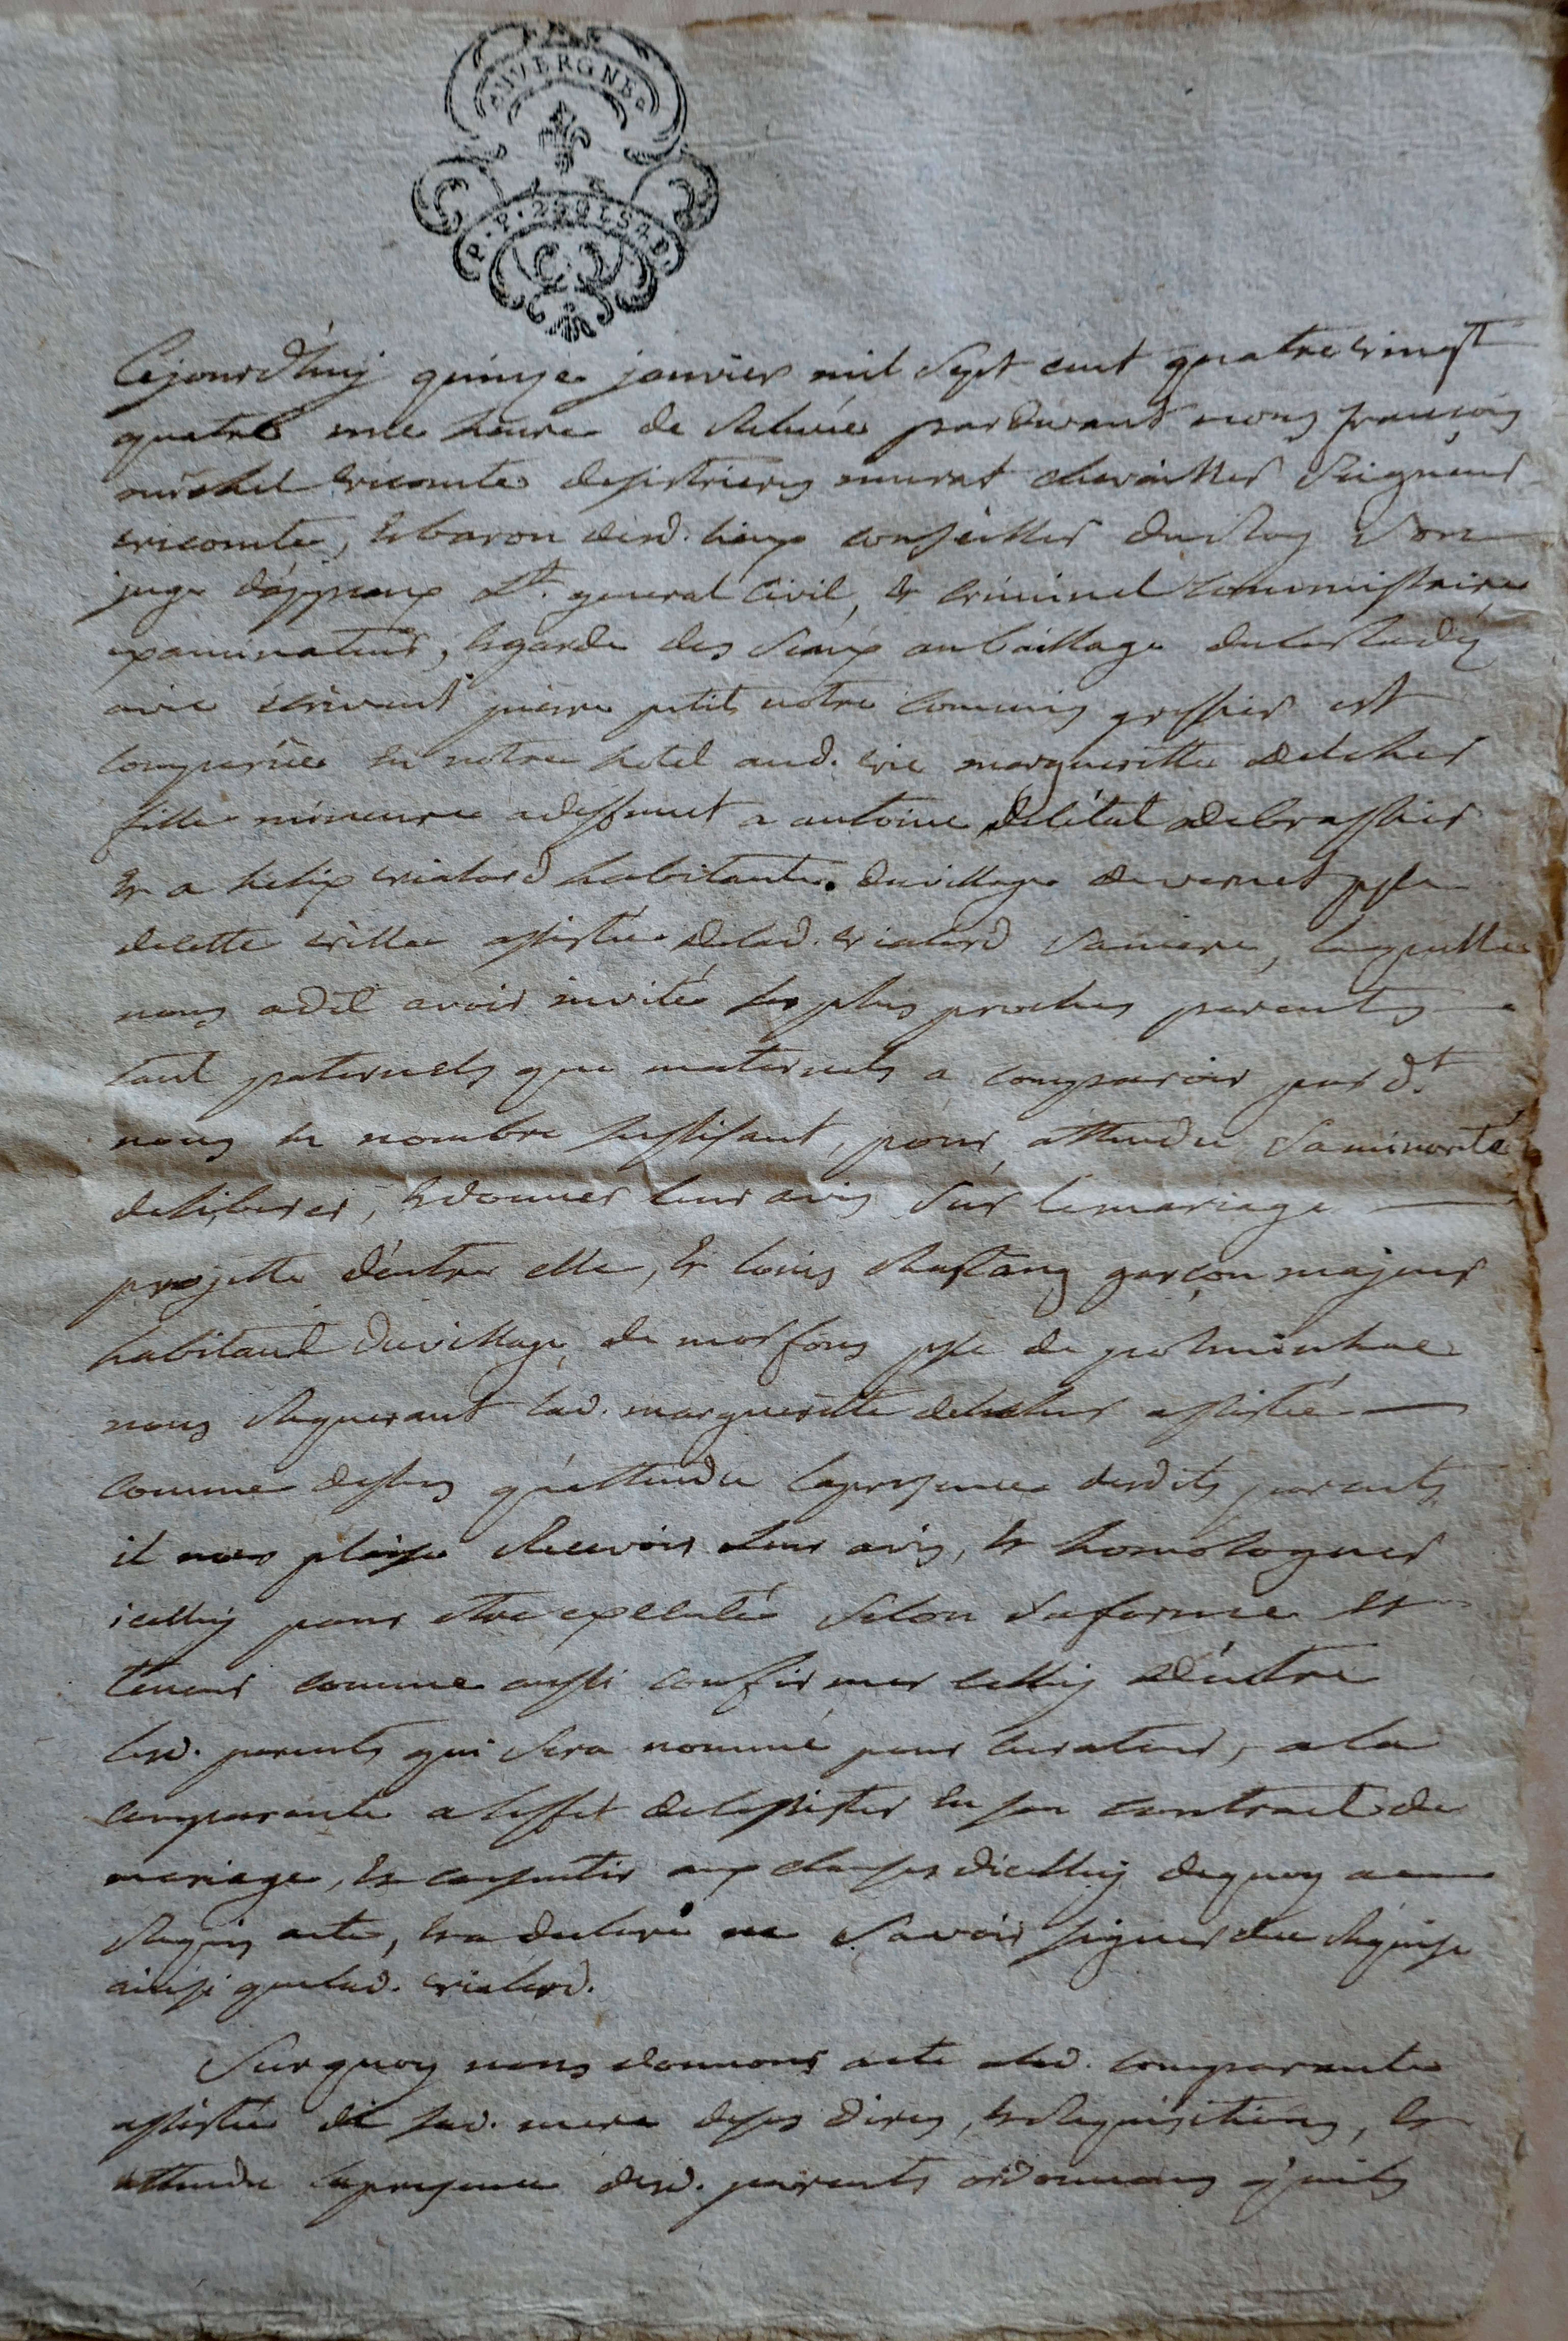 AUVERGNE
Cejourdhuy quinze janvier mil Sept cent quatre vingt
quatre une heure de Relevée pardevant nous françois
michel vicomte desistrieres murat chevallier Seigneur
vicomte, et baron desd. lieux conseiller du Roy Son
juge dáppeaux Lt. general Civil, et Criminel Commissaire
examinateur, et garde des Sceaux au baillage
avec écrivant pierre petit notre Commis greffier est
comparüe en notre hotel aud. vic margueritte delcher
fille mineure a deffunct a antoine delétat de brassier
et a helix vialard habitante du village de vernet psse
de cette ville assistée de lad. vialard Sa mere, laquelle
nous a dit avoir invité les plus proches parents
tant paternels que maternels a comparoir par dt.
nous en nombre suffisant, pour, attendu Sa minorité
deliberer, et donner leur avis Sur le mariage
projetté déntre elle, et louis Rastang garçon majeur
habitant du village de morfons psse de polminhac
nous Requerant lad. margueritte delcher assistée
comme dessus qúattendu la presence desdits parents
il nous plaise Recevoir leur avis, et homologuer
icelluy pour etre exécuté Selon Sa forme et
teneur comme aussi confirmer celluy déntre
lesd. parents qui Sera nommé pour curateur, a la
comparante a leffet de lassister en son contract de
mariage, et consentir aux clauses dicelluy de quoy a
Requis acte, et a declaré ne Savoir signer de ce Requise
ainsi que lad. vialard.
Surquoy nous donnons acte a lad. comparante
assistée de sad. mere de ses dires, et Requisitions, et
attendu la presence desd. parents ordonnons q'uils